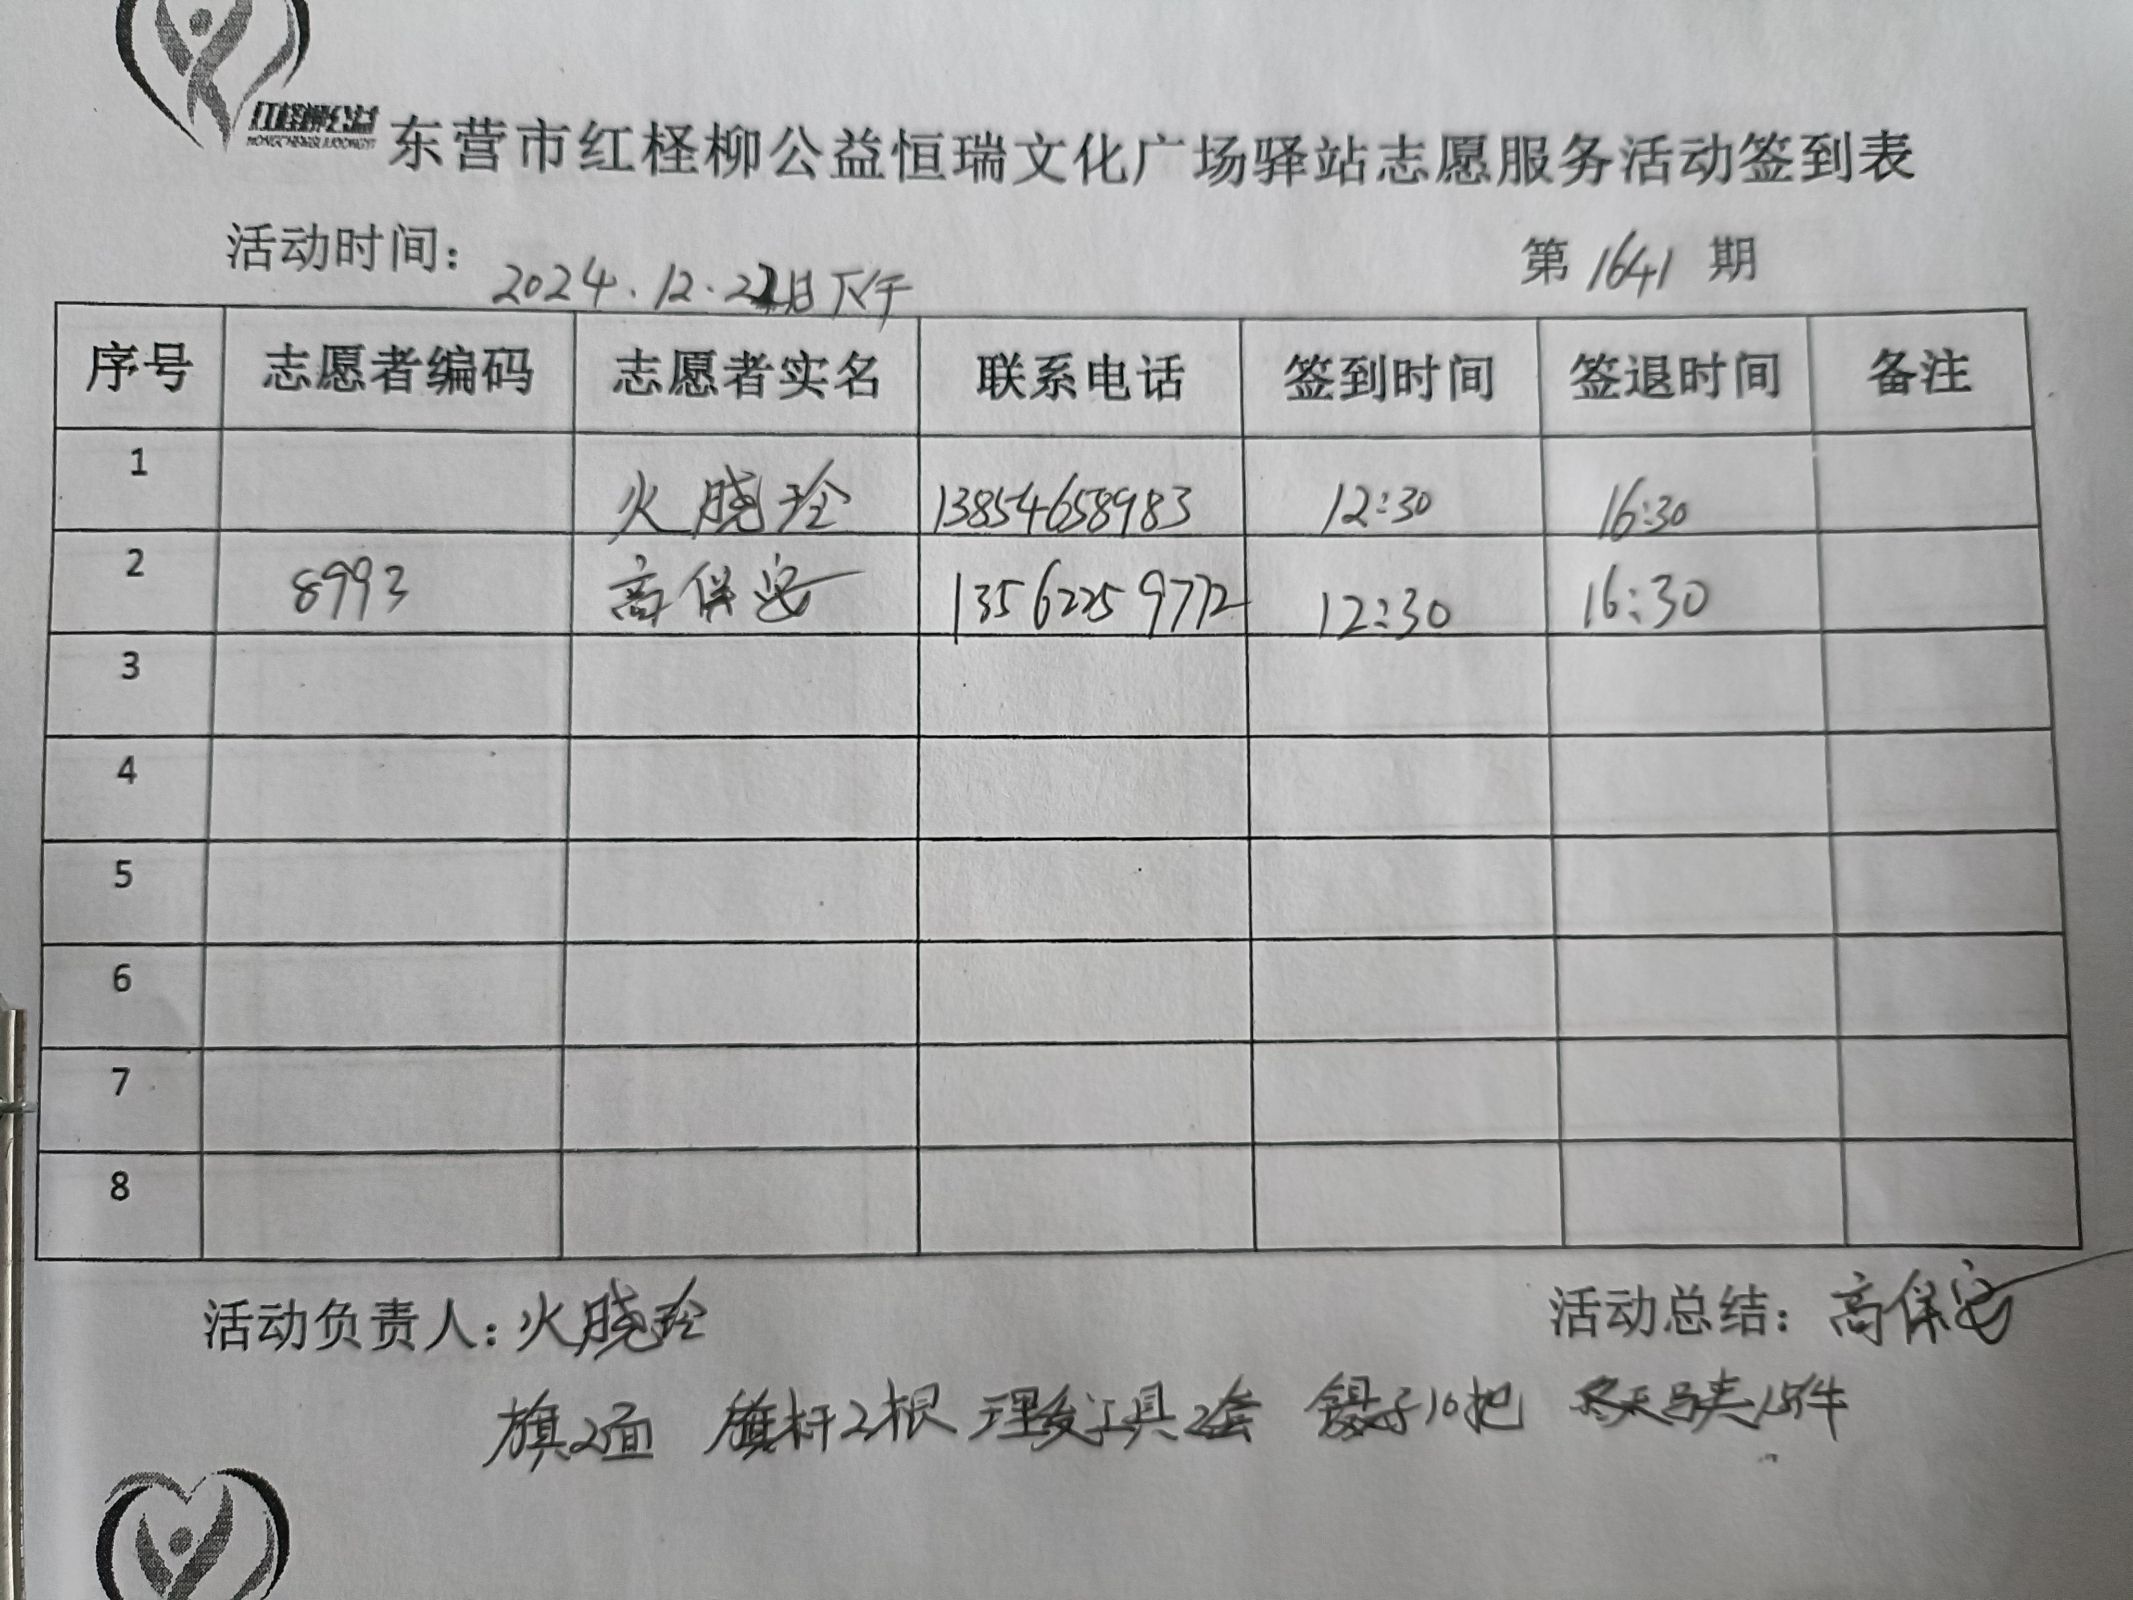 红柽柳公益
HONGCHENGLIUGONGYI
东营市红柽柳公益恒瑞文化广场驿站志愿服务活动签到表
活动时间： 2024.12.22日下午 第1641期
序号 志愿者编码 志愿者实名 联系电话 签到时间 签退时间 备注
1 火晓玲 13854658983 12:30 16:30
2 8993 高保安 13562259772 12:30 16:30
3
4
5
6
7
8
活动负责人：火晓玲 活动总结：高保安
旗2面 旗杆2根 理发工具2套 镊子10把 冬天马夹15件